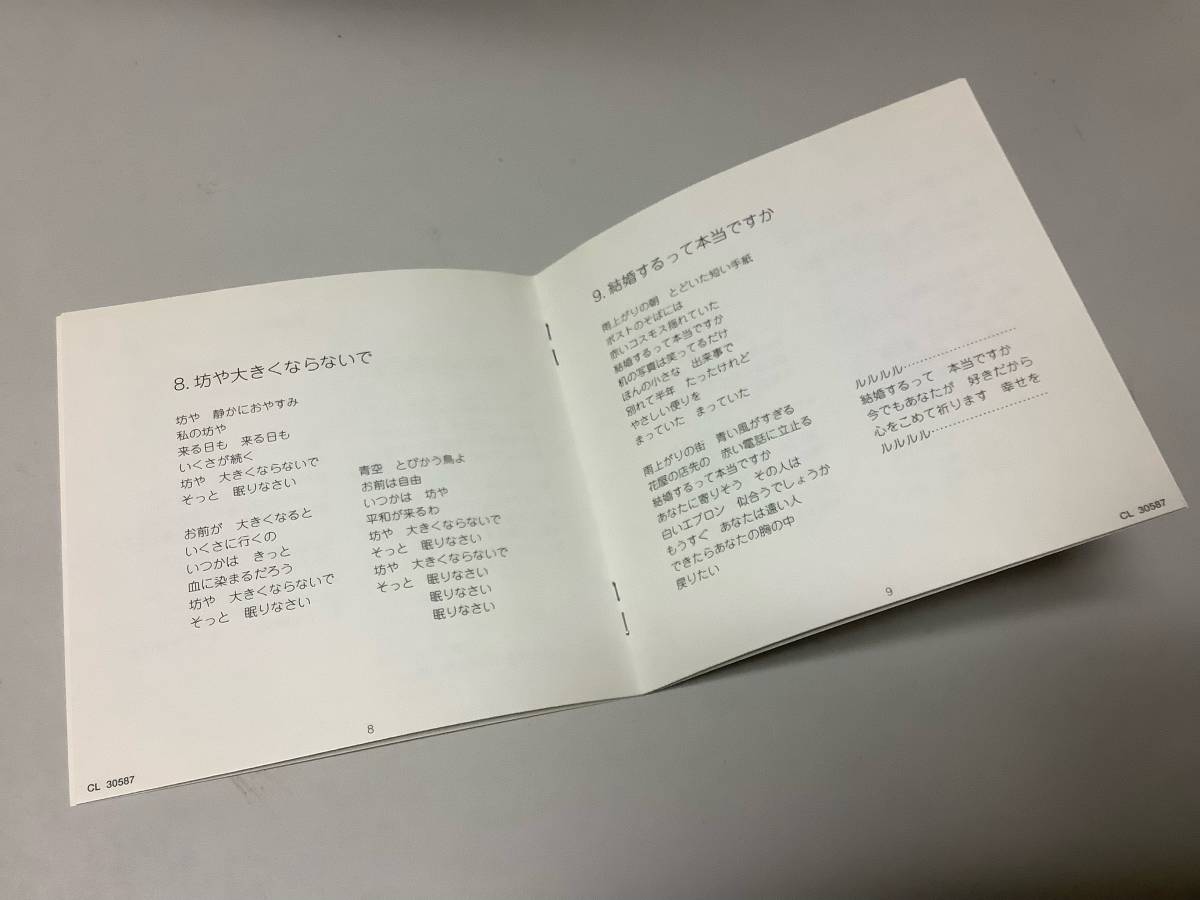 8. 坊や大きくならないで
坊や　静かにおやすみ
私の坊や
来る日も　来る日も
いくさが続く
坊や　大きくならないで
そっと　眠りなさい
お前が　大きくなると
いくさに行くの
いつかは　きっと
血に染まるだろう
坊や　大きくならないで
そっと　眠りなさい
青空　とびかう鳥よ
お前は自由
いつかは　坊や
平和が来るわ
坊や　大きくならないで
そっと　眠りなさい
坊や　大きくならないで
そっと　眠りなさい
眠りなさい
眠りなさい
8
CL 30587
9. 結婚するって本当ですか
雨上がりの朝　とどいた短い手紙
ポストのそばには
赤いコスモス揺れていた
結婚するって本当ですか
机の写真は笑ってるだけ
ほんの小さな　出来事で
別れて半年　たったけれど
やさしい便りを
まっていた　まっていた
雨上がりの街　青い風がすぎる
花屋の店先の　赤い電話に立止る
結婚するって本当ですか
あなたに寄りそう　その人は
白いエプロン　似合うでしょうか
もうすぐ　あなたは遠い人
できたらあなたの胸の中
戻りたい
ルルルル……………………………
結婚するって　本当ですか
今でもあなたが　好きだから
心をこめて祈ります　幸せを
ルルルル……………………………
9
CL 30587